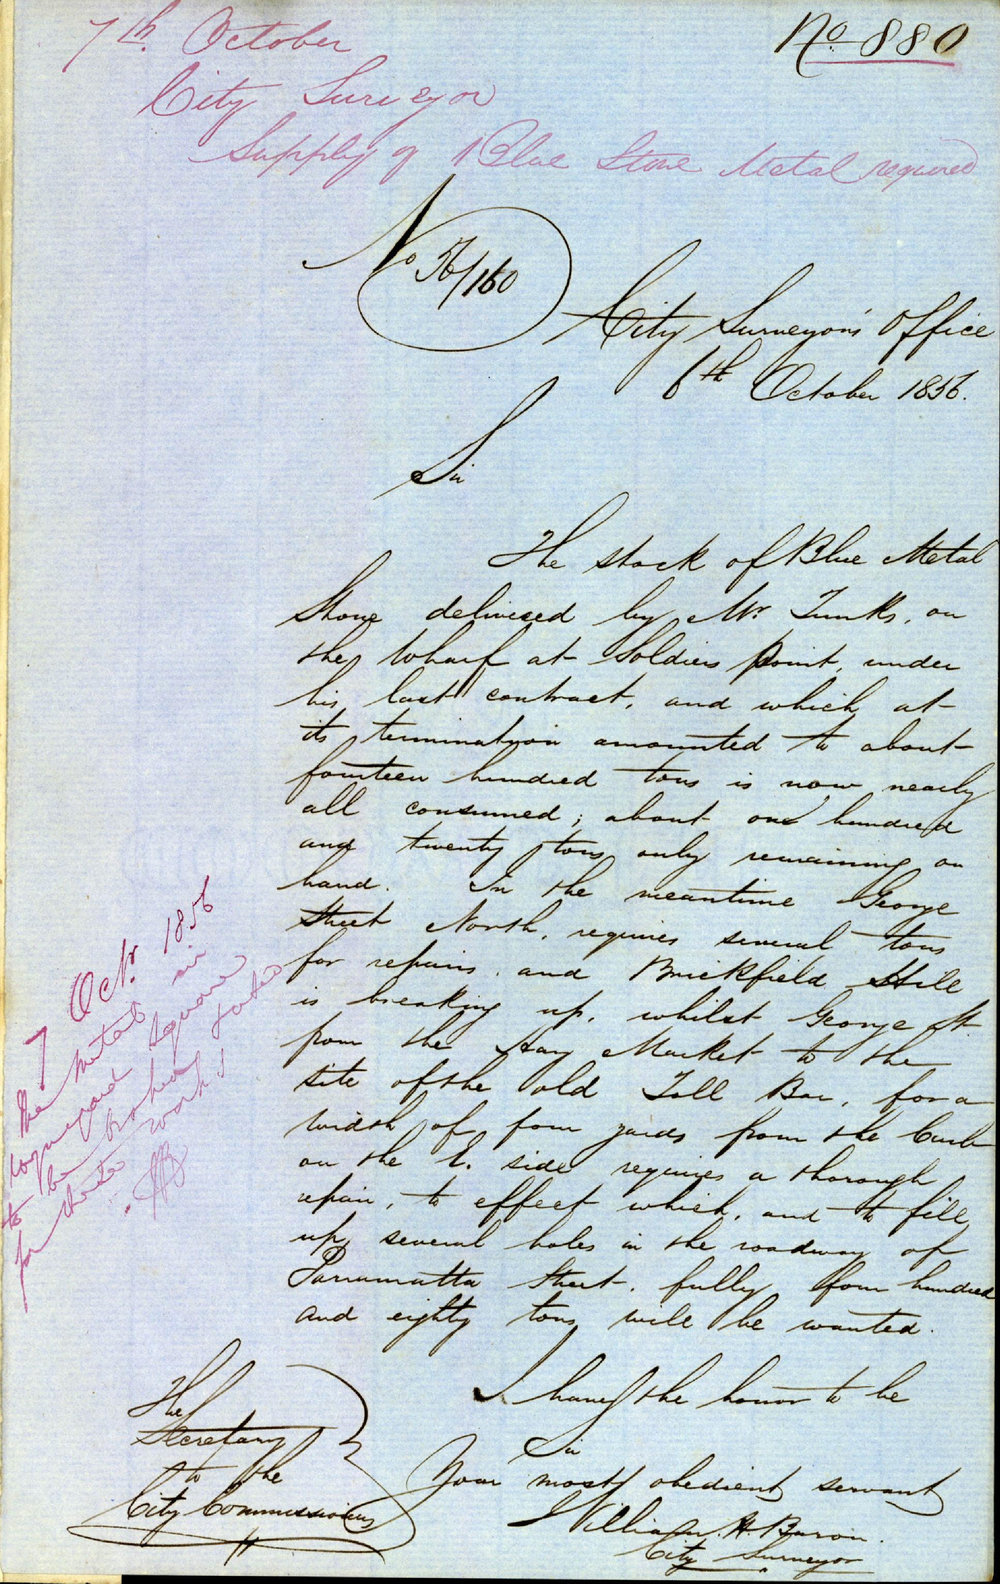 7th October
No. 880
City Surveyor
Supply of Blue Stone Metal required
No 56/160
City Surveyor's Office
6th October 1856.
Sir
The stock of Blue Metal
Stone delivered by Mr. Tunks, on
the Wharf at Soldiers Point, under
his last contract, and which at
its termination amounted to about
fourteen hundred tons is now nearly
all consumed; about one hundred
and twenty tons only remaining on
hand. In the meantime George
Street North, requires several tons
for repairs, and Brickfield Hill
is breaking up, whilst George St
from the Hay Market to the
site of the old Toll Bar, for a
width of four yards from the Curb
on the E. side requires a thorough
repair, to effect which, and to fill
up several holes in the roadway of
Parramatta Street, fully four hundred
and eighty tons will be wanted.
I have the honor to be
Sir
Your most obedient servant
William H. Baron.
City Surveyor
The
Secretary
to the
City Commissioners
7 Octr. 1856
the metal in
square
to be broken
for work